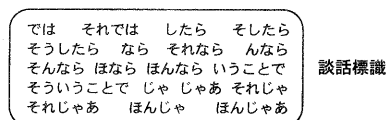 では それでは したら そしたら
そうしたら なら それなら んなら
そんなら ほなら ほんなら いうことで
そういうことで じゃ じゃあ それじゃ
それじゃあ ほんじゃ ほんじゃあ
談話標識